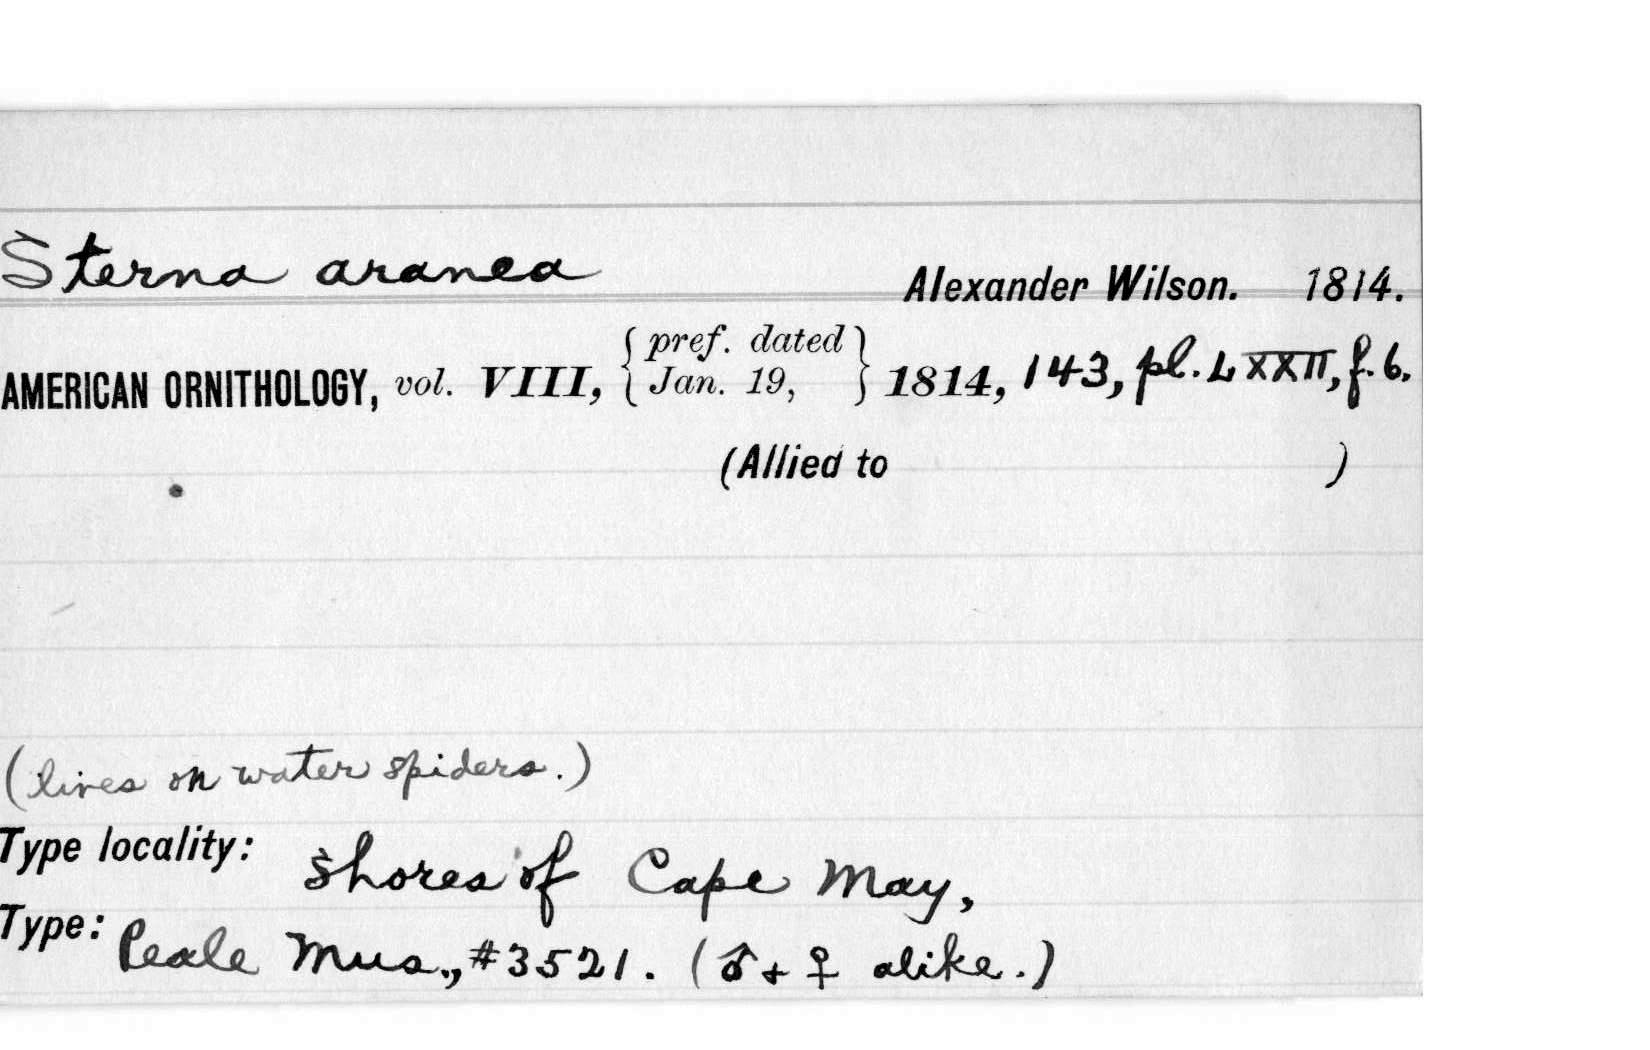 Sterna aranea Alexander Wilson. 1814.
AMERICAN ORNITHOLOGY, vol. VIII, { pref. dated Jan. 19, } 1814, 143, pl. LXXII, f. 6.
(Allied to )
(lives on water spiders.)
Type locality: Shores of Cape May,
Type: Peale Mus., #3521. (♂ + ♀ alike.)